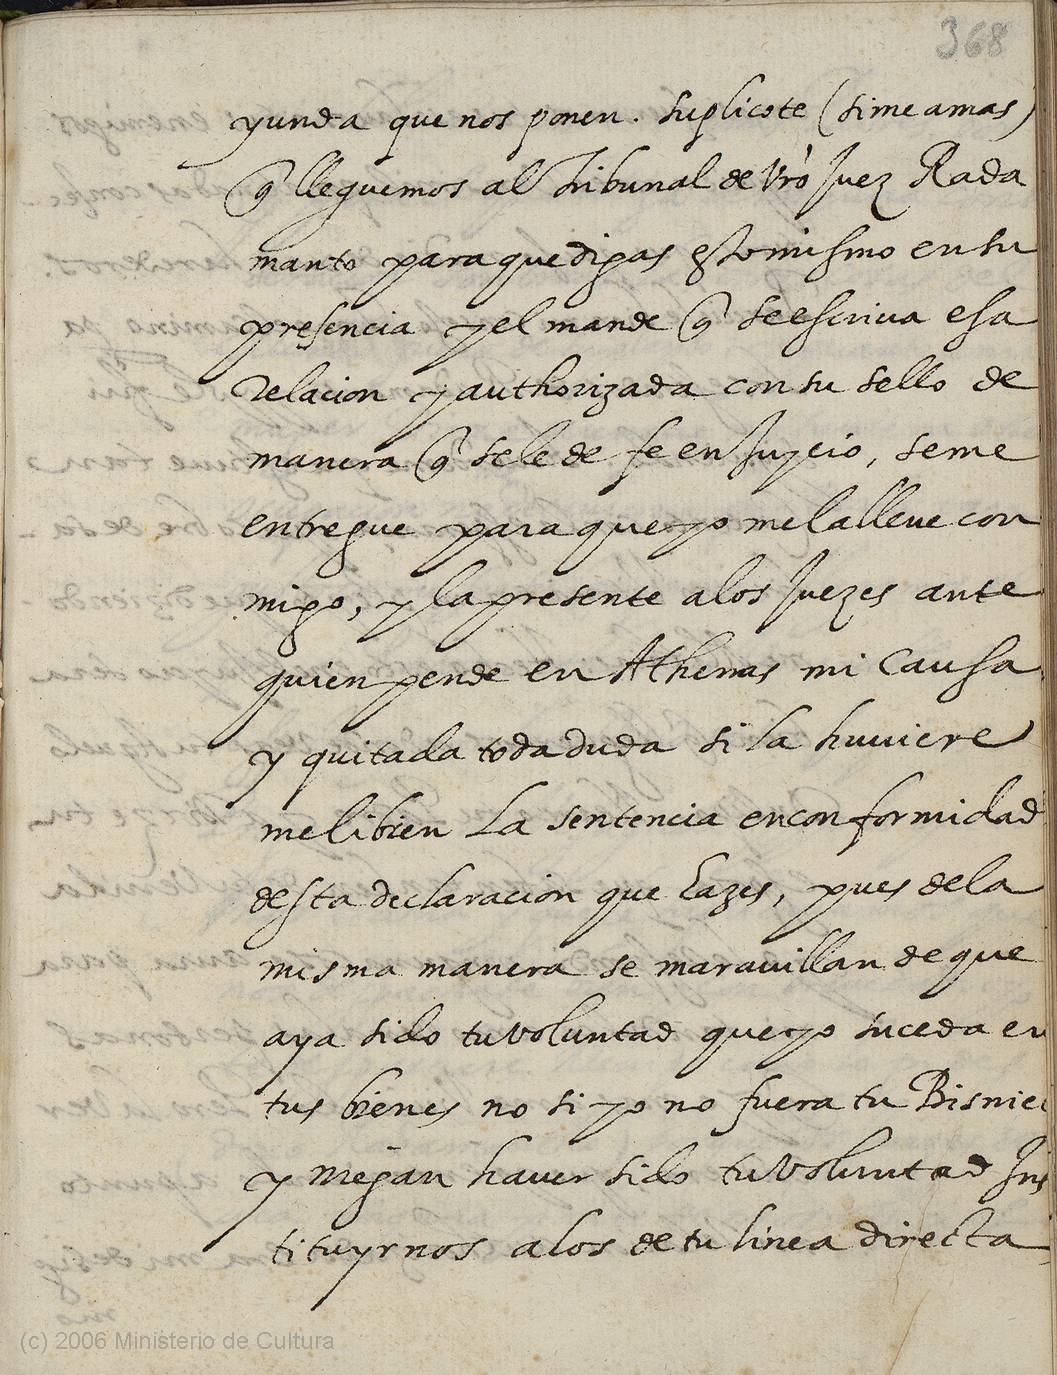 368
yunda que nos ponen. suplicote (si me amas)
q̃ lleguemos al Tribunal de Vrõ Juez Rada
manto para que digas esto mismo en su
presencia y el mande q̃ se escriva esa
relacion y authorizada con su sello de
manera q̃ se le de fe en Juycio, se me
entregue para que yo me la lleve con
migo, y la presente a los Juezes ante
quien pende en Athenas mi causa
y quitada toda duda si la huuiere
me libren La sentencia en conformidad
desta declaracion que hazes, pues de la
misma manera se marauillan de que
aya sido tu voluntad que yo suceda en
tus bienes no si yo no fuera tu Bisnie
y niegan hauer sido tu voluntad Ins
tituyrnos a los de tu linea directa
(c) 2006 Ministerio de Cultura